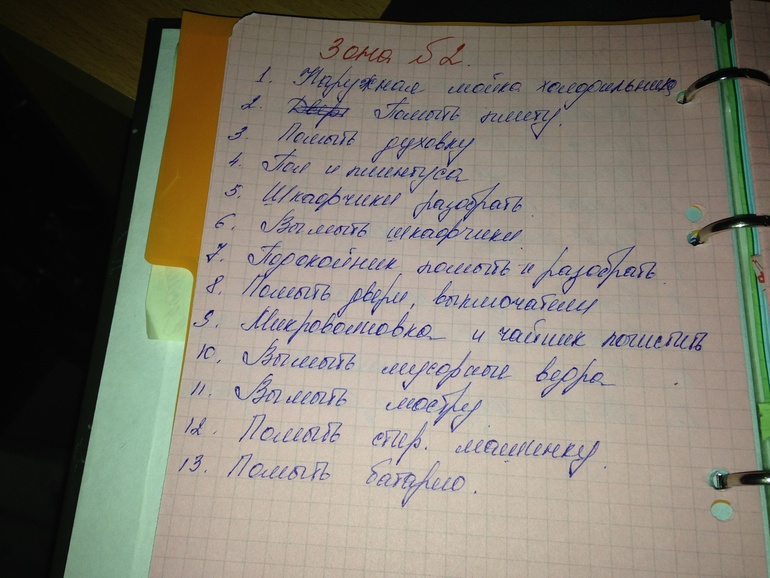 Зона №2.
1. Наружная мойка холодильника
2. Помыть плиту.
3. Помыть духовку
4. Пол и плинтуса
5. Шкафчики разобрать.
6. Вымыть шкафчики
7. Подокойник помыть и разобрать.
8. Помыть двери, выключатели
9. Микроволновка и чайник почистить
10. Вымыть мусорные ведра
11. Вымыть люстру
12. Помыть стир. машинку.
13. Помыть батарею.